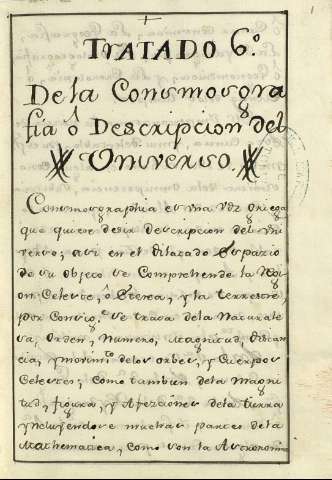 TRATADO 6.º
De la Consmosgra
fia ô Descripcion del
Universo.
Consmographia es vna voz Griega
que quiere desir Descripcion del Vni
verso; asi en el dilatado Espazio
de su objeto se Comprehende la Regi
on Celeste, ô Eterea, y la terrestre,
por Consig.e se trata dela Naturale
sa, Orden, Numero, Magnitud, distan
cia, y movim.to delos orbes, y Cuerpos
Celestes; como tambien dela Magni
tud, figura, y Afeziones dela tierra
yncluyendose muchas partes dela
Mathematica, como son la Astronomia